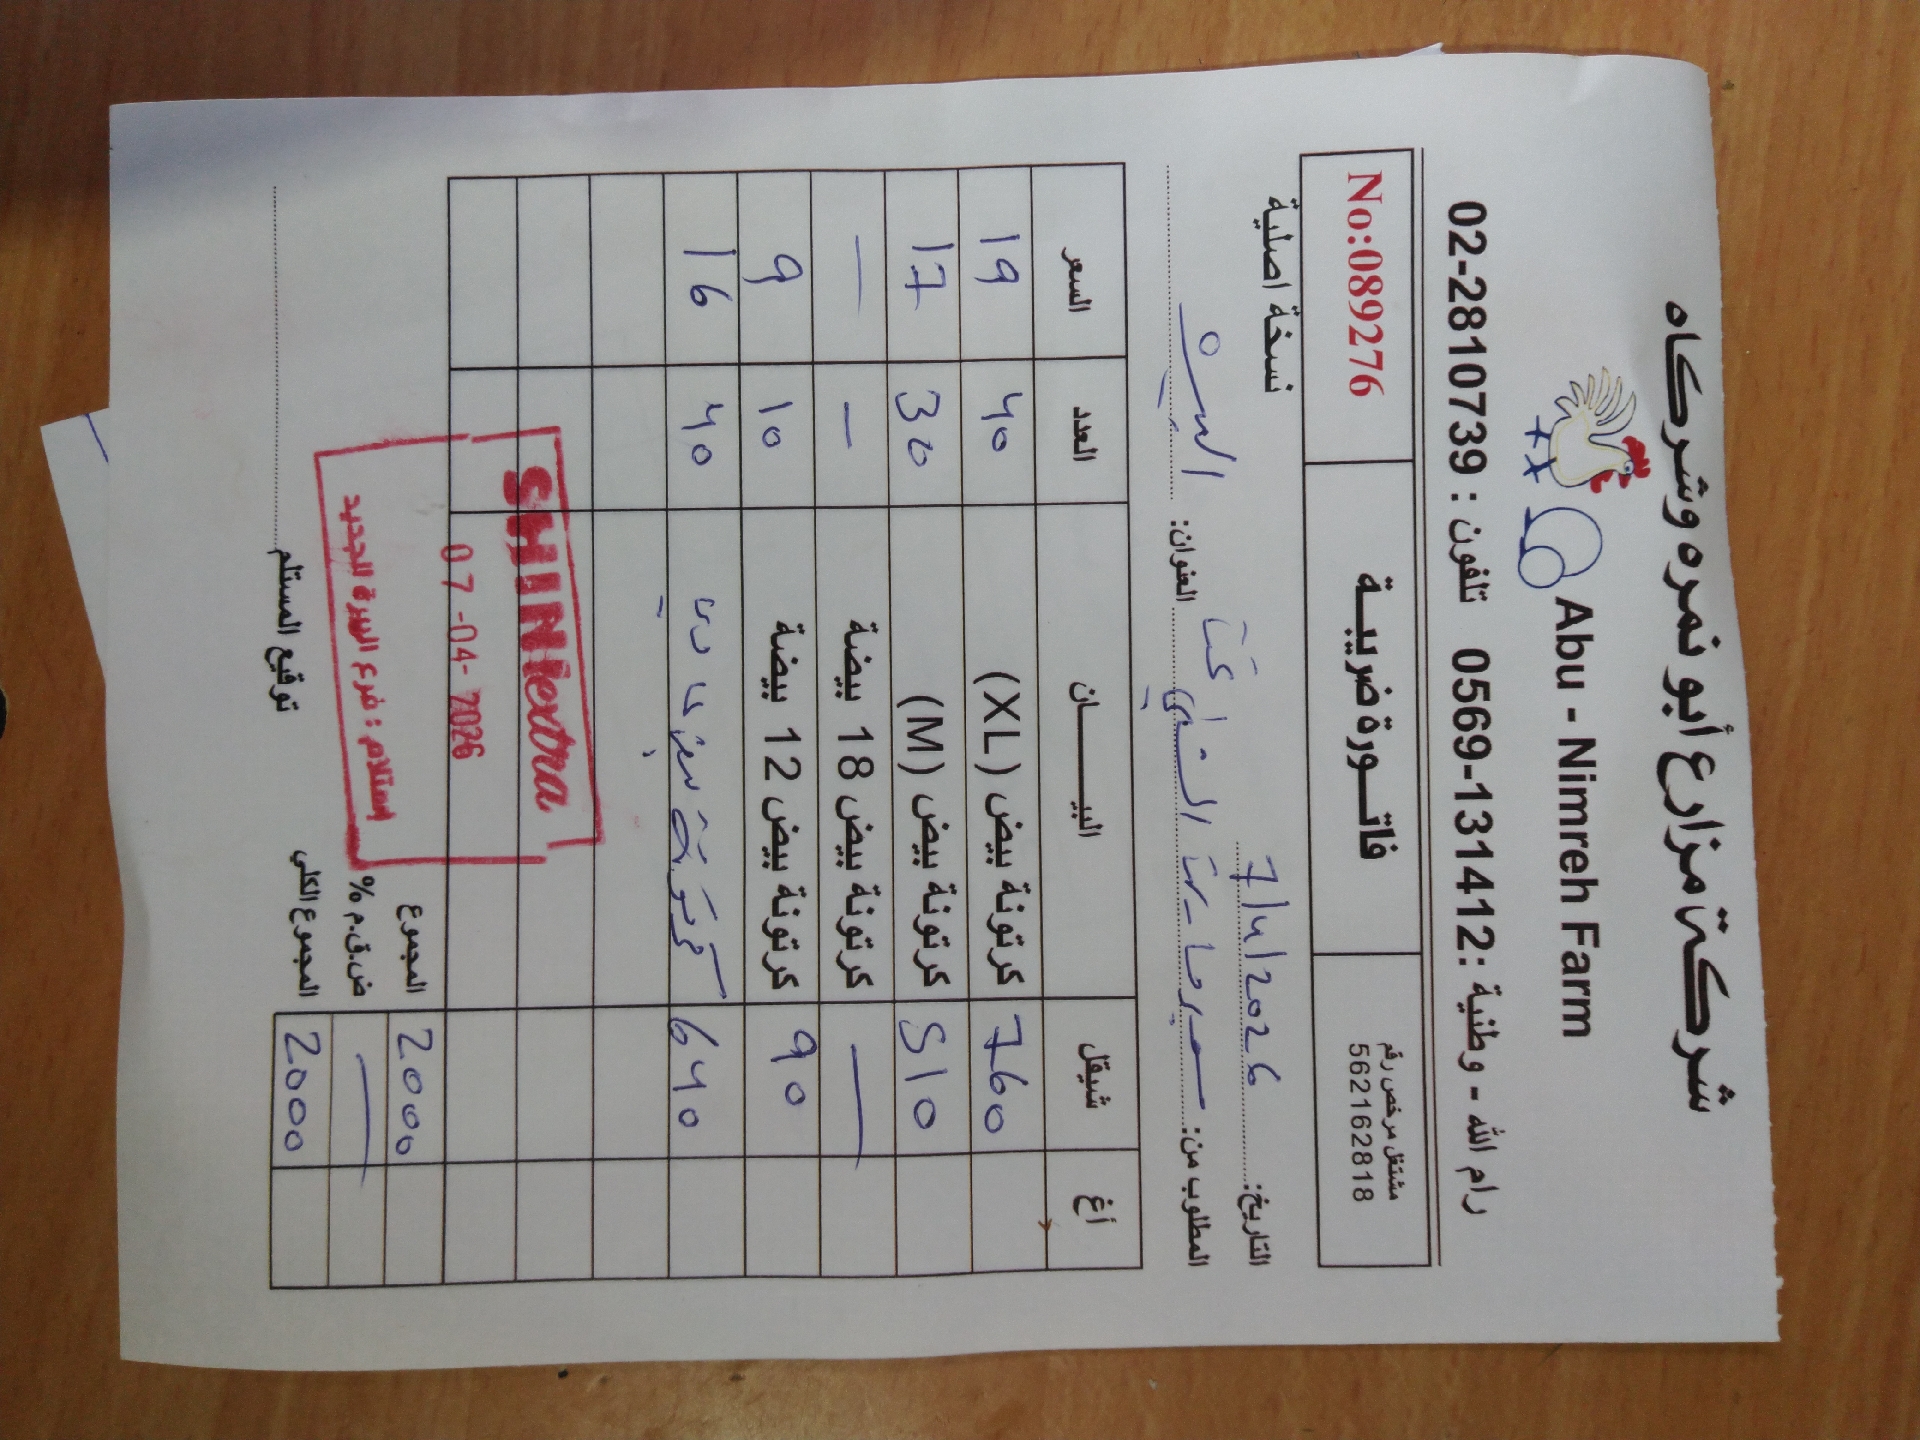 شركة مزارع أبو نمره وشركاه
Abu - Nimreh Farm
رام الله - وطنية : 0569-131412 تلفون : 02-2810739
مشتغل مرخص رقم
562162818
فاتــورة ضريبــة
No:089276
التاريخ: 7/4/2026
نسخة اصلية
المطلوب من: العنوان: البيره
أغ شيقل البيـــــــان العدد السعر
760 كرتونة بيض (XL) 40 19
510 كرتونة بيض (M) 30 17
— كرتونة بيض 18 بيضة — —
90 كرتونة بيض 12 بيضة 10 9
640 كرتونة بيض 40 16
SHINI extra
07-04-2026
إستلام : فرع البيرة الجديد
المجموع 2000
ض.ق.م % —
المجموع الكلي 2000
توقيع المستلم